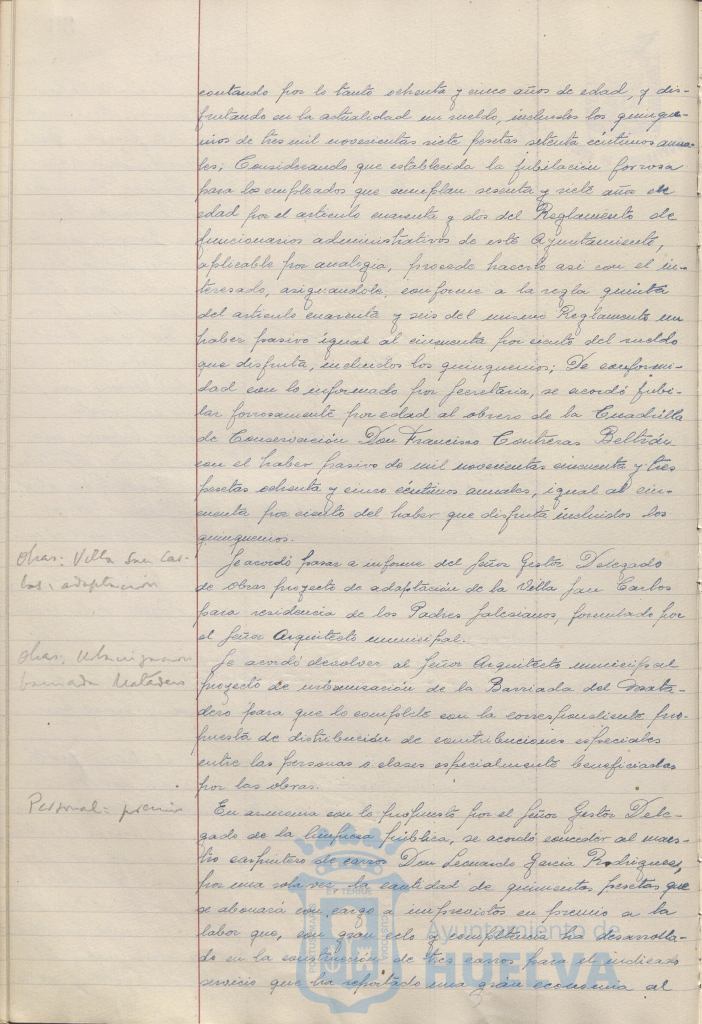 contando por lo tanto ochenta y cinco años de edad, y dis-
frutando en la actualidad un sueldo, incluidos los quinque-
nios de tres mil novecientas siete pesetas setenta céntimos anua-
les; Considerando que establecida la jubilación forzosa
para los empleados que cumplan sesenta y siete años de
edad por el artículo cuarenta y dos del Reglamento de
funcionarios administrativos de este Ayuntamiento,
aplicable por analogía, procede hacerlo así con el in-
teresado, asignandole, conforme a la regla quinta
del artículo cuarenta y seis del mismo Reglamento un
haber pasivo igual al cincuenta por ciento del sueldo
que disfruta, incluidos los quinquenios; De conformi-
dad con lo informado por Secretaría, se acordó jubi-
lar forzosamente por edad al obrero de la Cuadrilla
de Conservación Don Francisco Contreras Beltrán
con el haber pasivo de mil novecientas cincuenta y tres
pesetas ochenta y cinco céntimos anuales, igual al cin-
cuenta por ciento del haber que disfruta incluidos los
quinquenios.
Obras: Villa San Car-
los, adaptación
Se acordó pasar a informe del Señor Gestor Delegado
de obras proyecto de adaptación de la Villa San Carlos
para residencia de los Padres Salesianos, formulado por
el Señor Arquitecto municipal.
Obras, Urbanización
barriada Matadero
Se acordó devolver al Señor Arquitecto municipal
proyecto de urbanización de la Barriada del Mata-
dero para que lo complete con la correspondiente pro-
puesta de distribución de contribuciones especiales
entre las personas o clases especialmente beneficiadas
por las obras.
Personal: premio
En armonia con lo propuesto por el Señor Gestor Dele-
gado de la limpieza pública, se acordó conceder al maes-
tro carpintero de carros Don Leonardo García Rodríguez,
por una sola vez la cantidad de quinientas pesetas que
se abonará con cargo a imprevistos en premio a la
labor que, con gran celo y competencia ha desarrolla-
do en la construcción de tres carros para el indicado
servicio que ha reportado una gran economía al
Ayuntamiento de
HUELVA